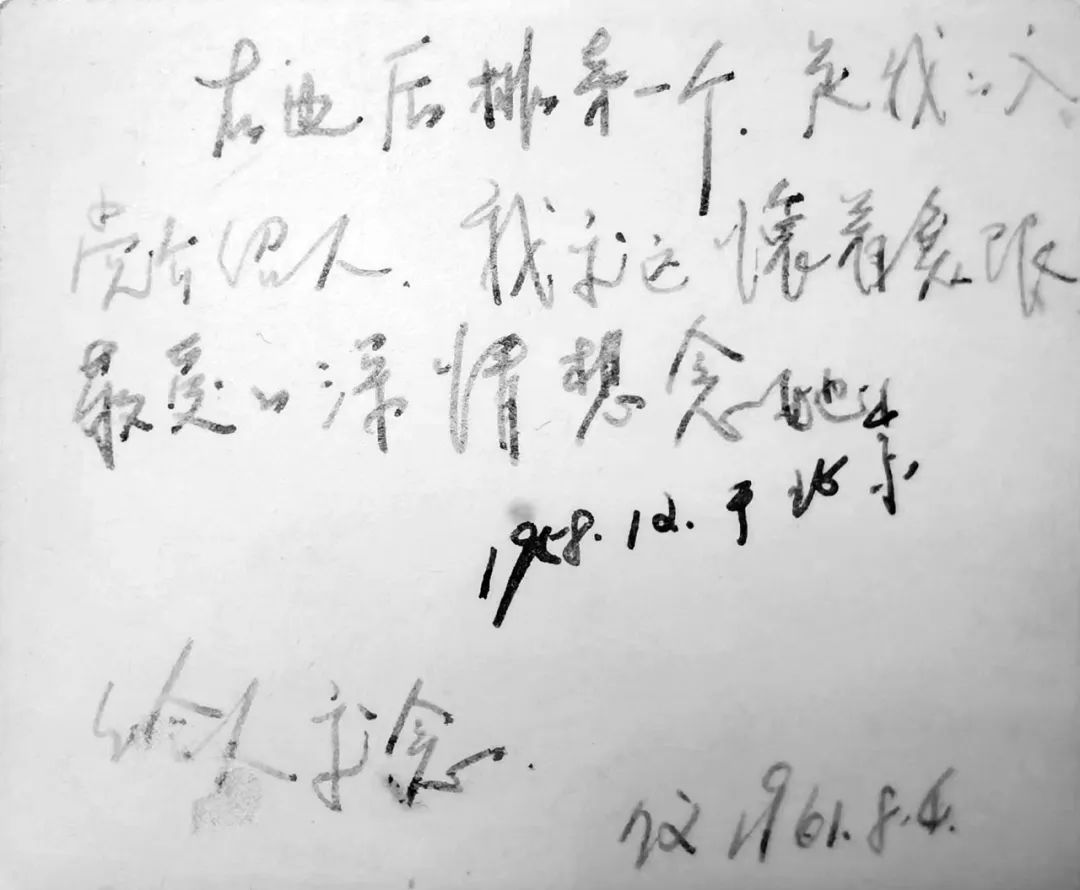 右边后排第一个.是我的入
党介绍人.我永远懷着无限
最爱的深情想念她
1958.12.于北京
给人永念.
仪1961.8.4.